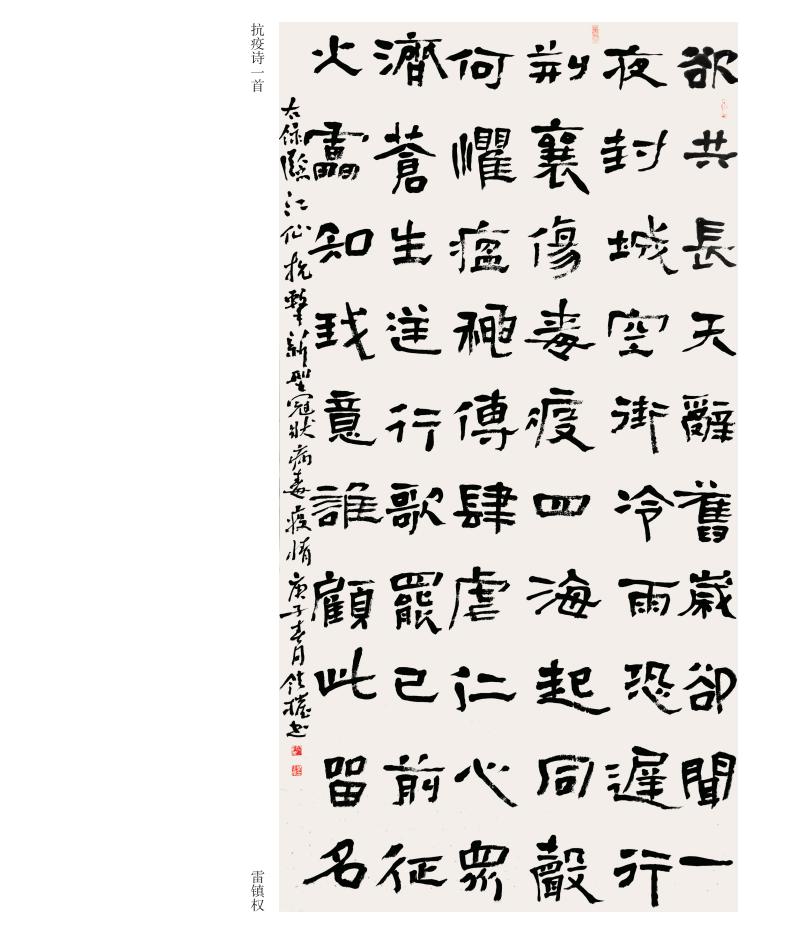 欲共長天辭舊歲卻聞一
夜封城空街冷雨恐遲行
荊襄傷毒疫四海起同聲
何懼瘟神傳肆虐仁心眾
濟蒼生送行歌罷已前征
火雷知我意誰顧此留名
右録臨江仙抗擊新型冠狀病毒疫情庚子春月鎮權書
抗疫诗一首
雷镇权